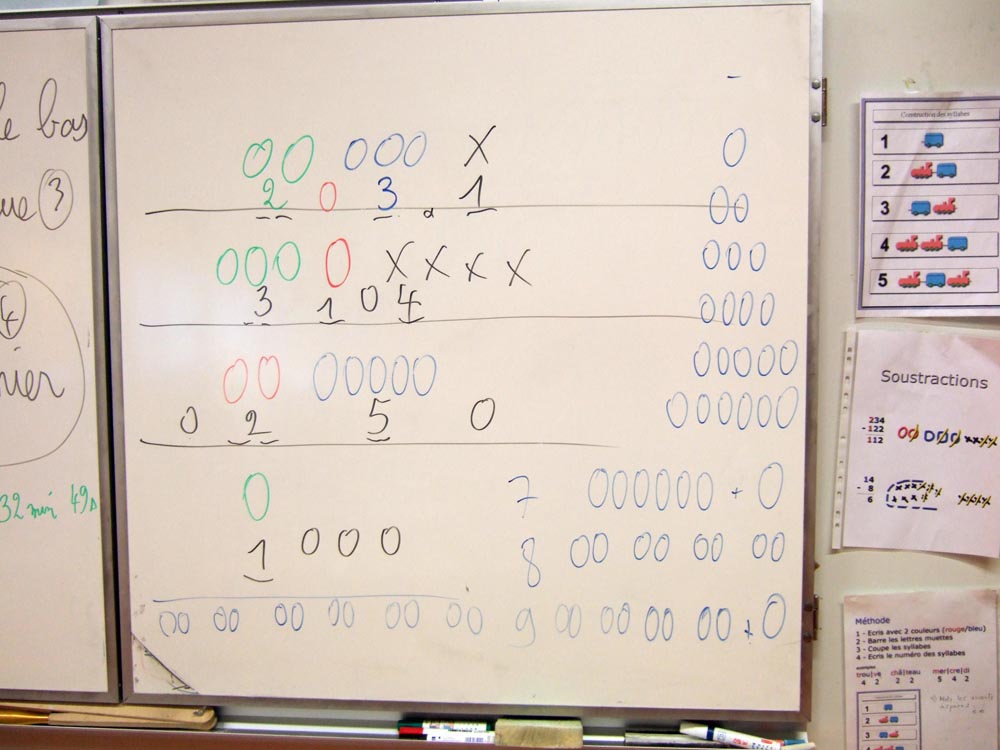 le bas
3
4
32 min 49s
00 000 X
2 0 3 1
000 0 X X X X
3 1 0 4
00 00000
0 2 5 0
0
1 0 0 0
00 00 00 00 00 00
-
0
00
000
0000
00000
000000
7 000000 + 0
8 00 00 00 00
9 00 00 00 00 + 0
Construction des syllabes
1
2
3
4
5
Soustractions
234
-122
112
14
- 8
6
Méthode
1 - Ecris avec 2 couleurs (rouge/bleu)
2 - Barre les lettres muettes
3 - Coupe les syllabes
4 - Ecris le numéro des syllabes
exemples
trou|vé châ|teau mer|cre|di
4 2 2 2 5 4 2
1
2
3
4